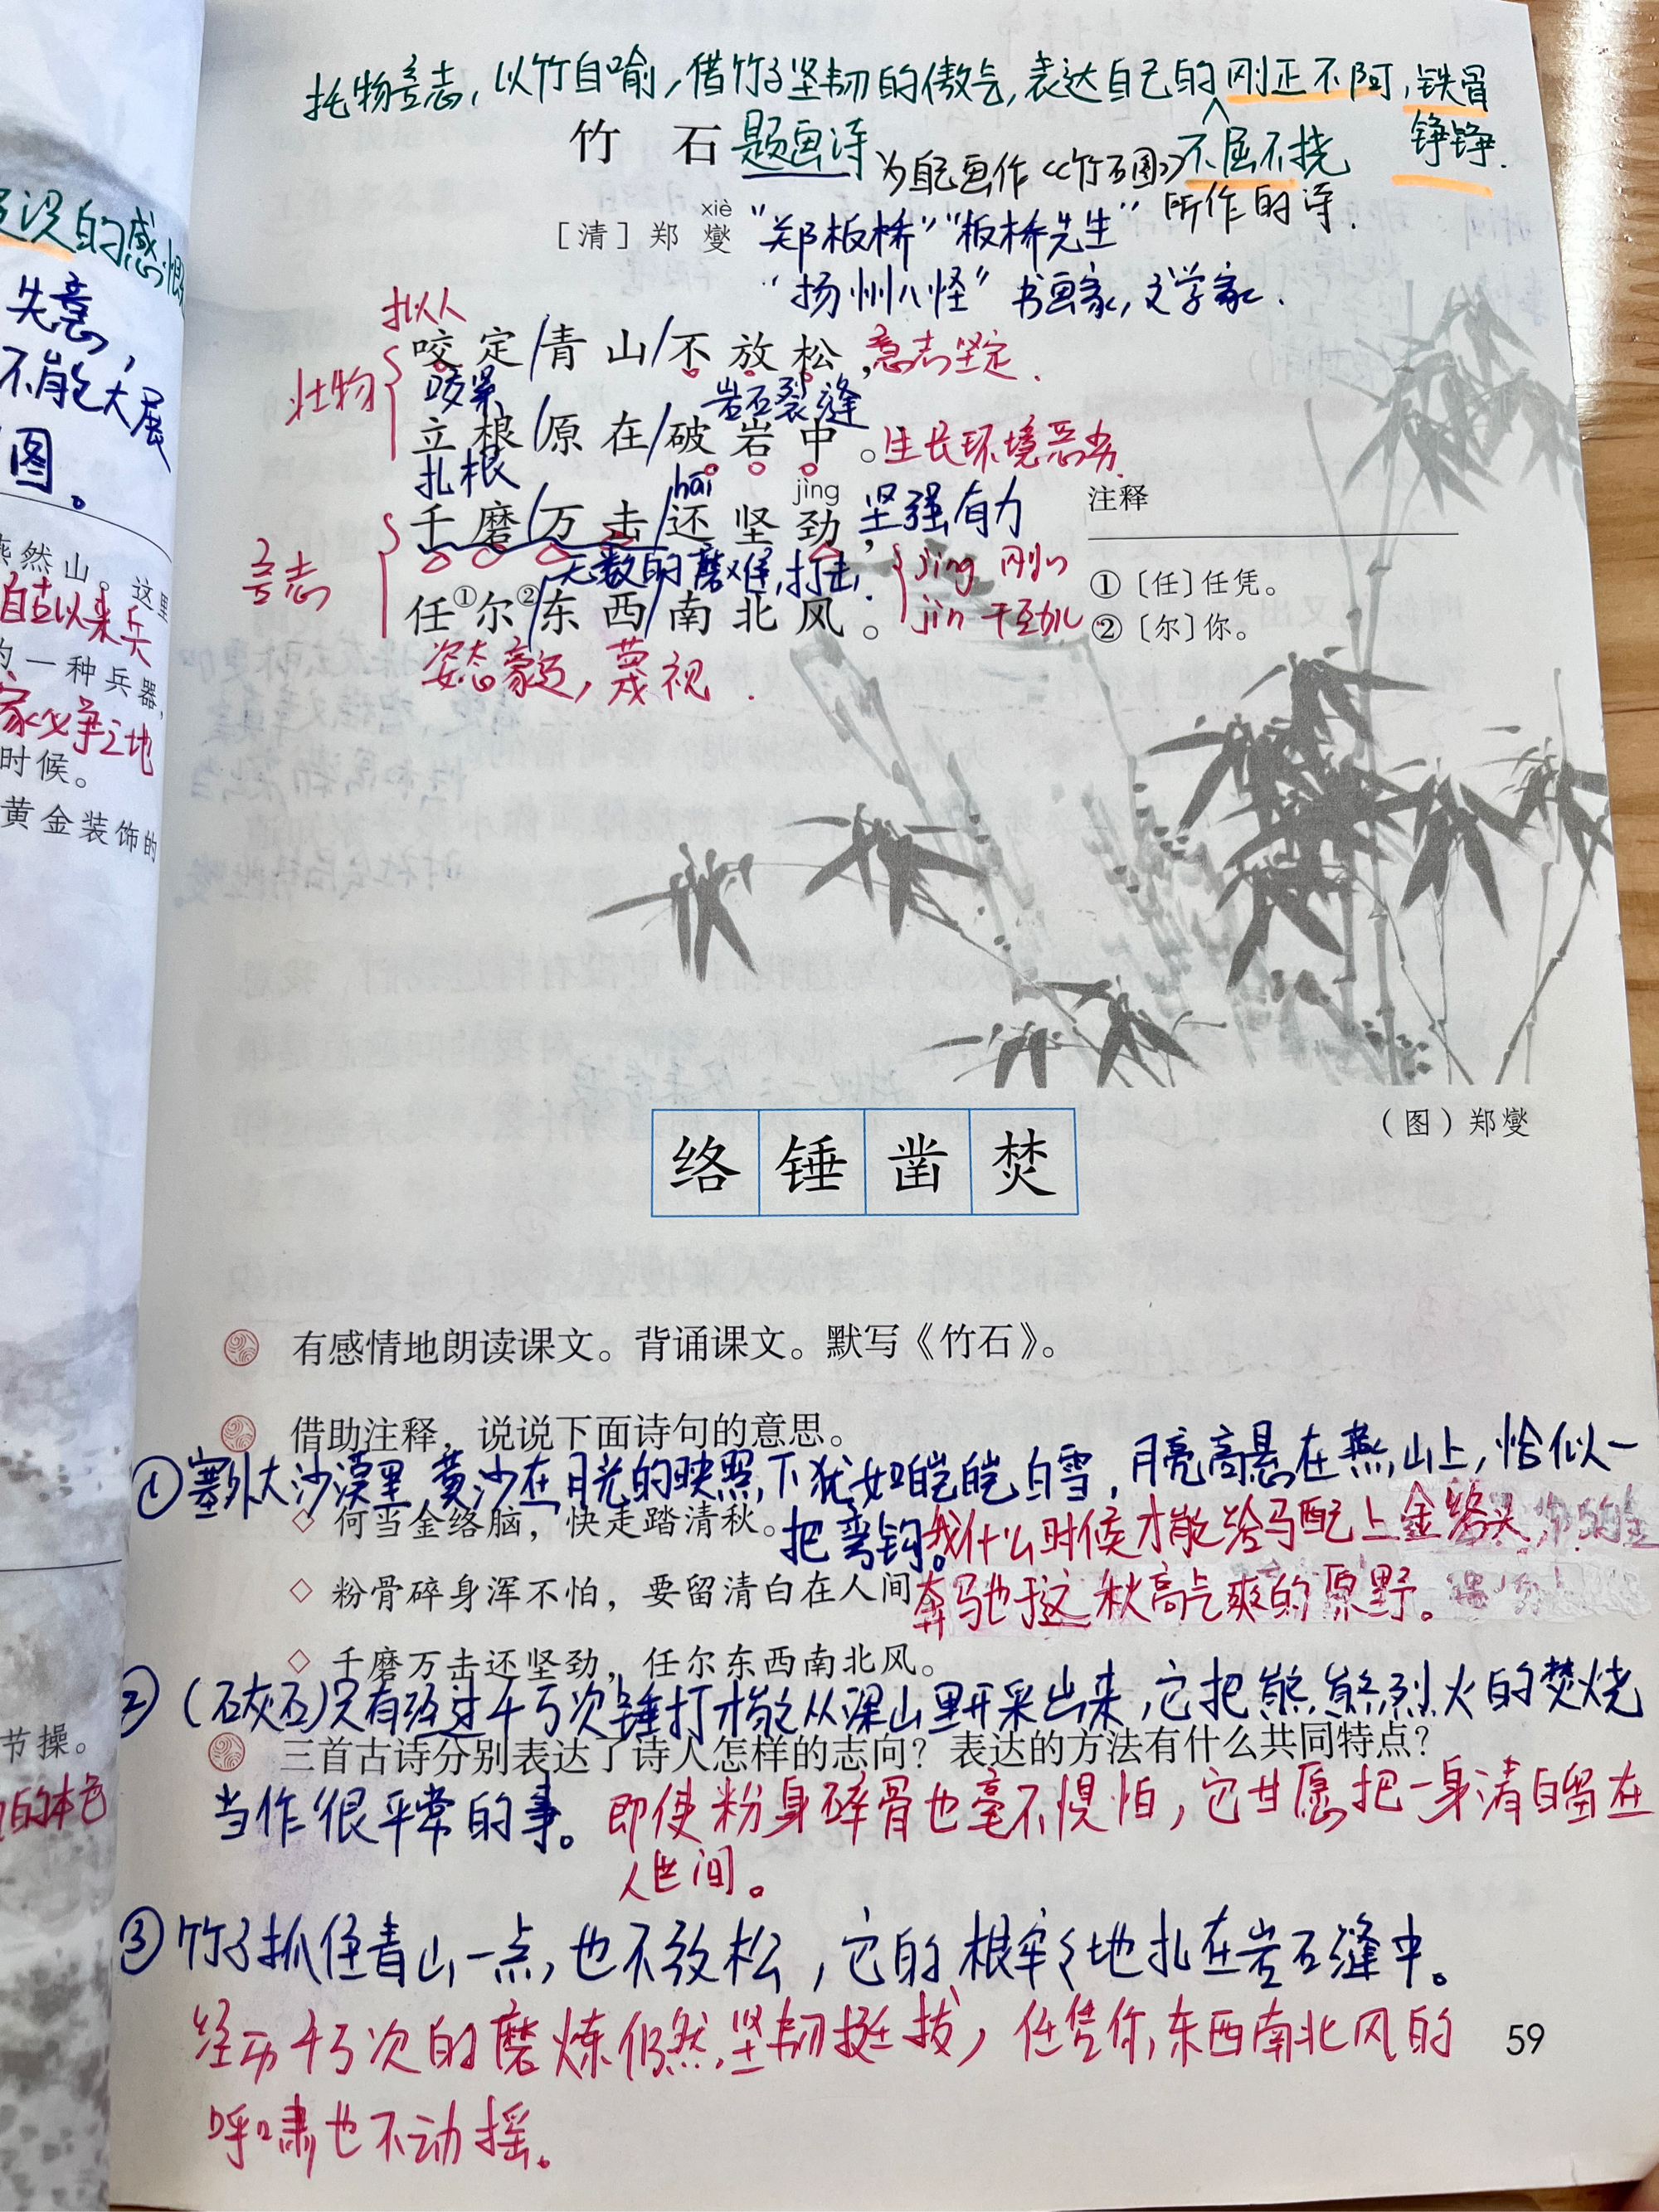 托物言志，以竹自喻，借竹子坚韧的傲气，表达自己的刚正不阿，铁骨
铮铮．
不屈不挠
竹 石 题画诗
为自己画作《竹石图》
所作的诗．
xiè
［清］郑 燮 “郑板桥”“板桥先生”
“扬州八怪” 书画家，文学家．
拟人
咬定/青山/不放松，意志坚定．
咬紧
岩石裂缝
状物
立根/原在/破岩中。生长环境恶劣．
扎根
hái jìng
千磨/万击/还坚劲，坚强有力
无数的磨难，打击．
jìng 刚心
jìn 干劲儿
言志
任①尔②/东西/南北风。
姿态豪迈，蔑视．
注释
①〔任〕任凭。
②〔尔〕你。
（图）郑燮
络 锤 凿 焚
有感情地朗读课文。背诵课文。默写《竹石》。
借助注释，说说下面诗句的意思。
①塞外大沙漠里，黄沙在月光的映照下犹如皑皑白雪，月亮高悬在燕山上，恰似一
把弯钩。我什么时候才能给马配上金络头，
◇ 何当金络脑，快走踏清秋。
奔驰于这秋高气爽的原野。
◇ 粉骨碎身浑不怕，要留清白在人间
◇ 千磨万击还坚劲，任尔东西南北风。
②（石灰石）只有经过千万次锤打才能从深山里开采出来，它把熊熊烈火的焚烧
三首古诗分别表达了诗人怎样的志向？表达的方法有什么共同特点？
当作很平常的事。即使粉身碎骨也毫不惧怕，它甘愿把一身清白留在
人世间。
③竹子抓住青山一点，也不放松，它的根牢々地扎在岩石缝中。
经历千万次的磨炼仍然坚韧挺拔，任凭你东西南北风的
呼啸也不动摇。
59
的感恨
失意，
不能大展
图。
燕然山。这里
自古以来兵
的一种兵器，
家必争之地
时候。
黄金装饰的
节操。
的本色